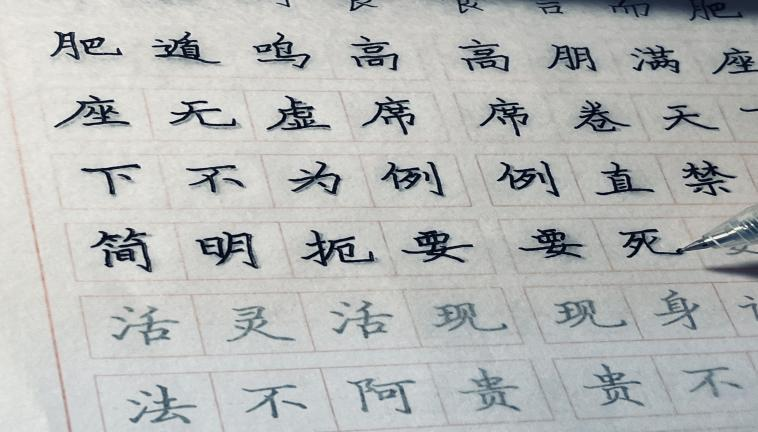 良 良 言 而 肥
肥 遁 鸣 高 高 朋 满 座
座 无 虚 席 席 卷 天
下 不 为 例 例 直 禁
简 明 扼 要 要 死
活 灵 活 现 现 身
法 不 阿 贵 贵 不